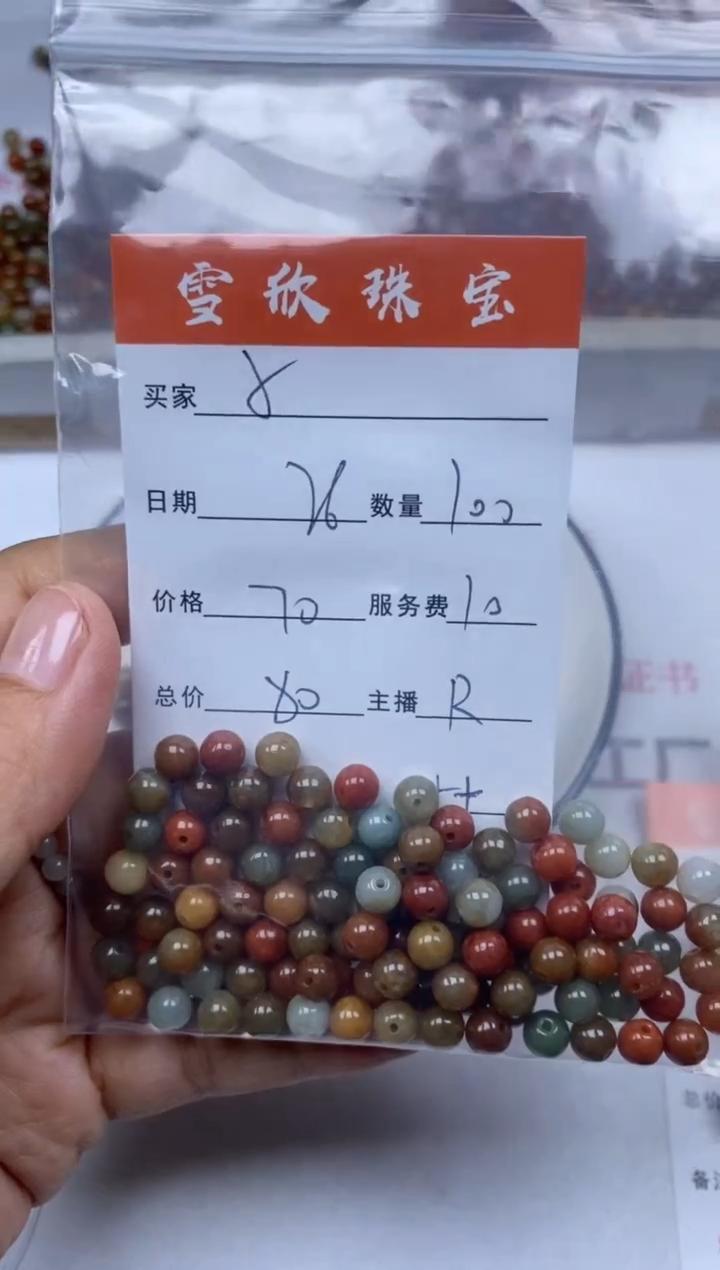 雪欣珠宝
买家 8
日期 26 数量 100
价格 70 服务费 10
总价 80 主播 R
证书
工厂
总价